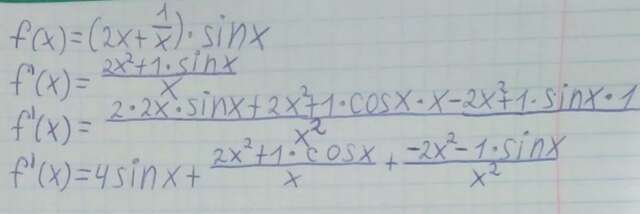 f(x)=(2x+1/x)·sinx
f'(x)=(2x²+1·sinx)/x
f'(x)=(2·2x·sinx+2x²+1·cosx·x-2x²+1·sinx·1)/x²
f'(x)=4sinx+(2x²+1·cosx)/x+(-2x²-1·sinx)/x²